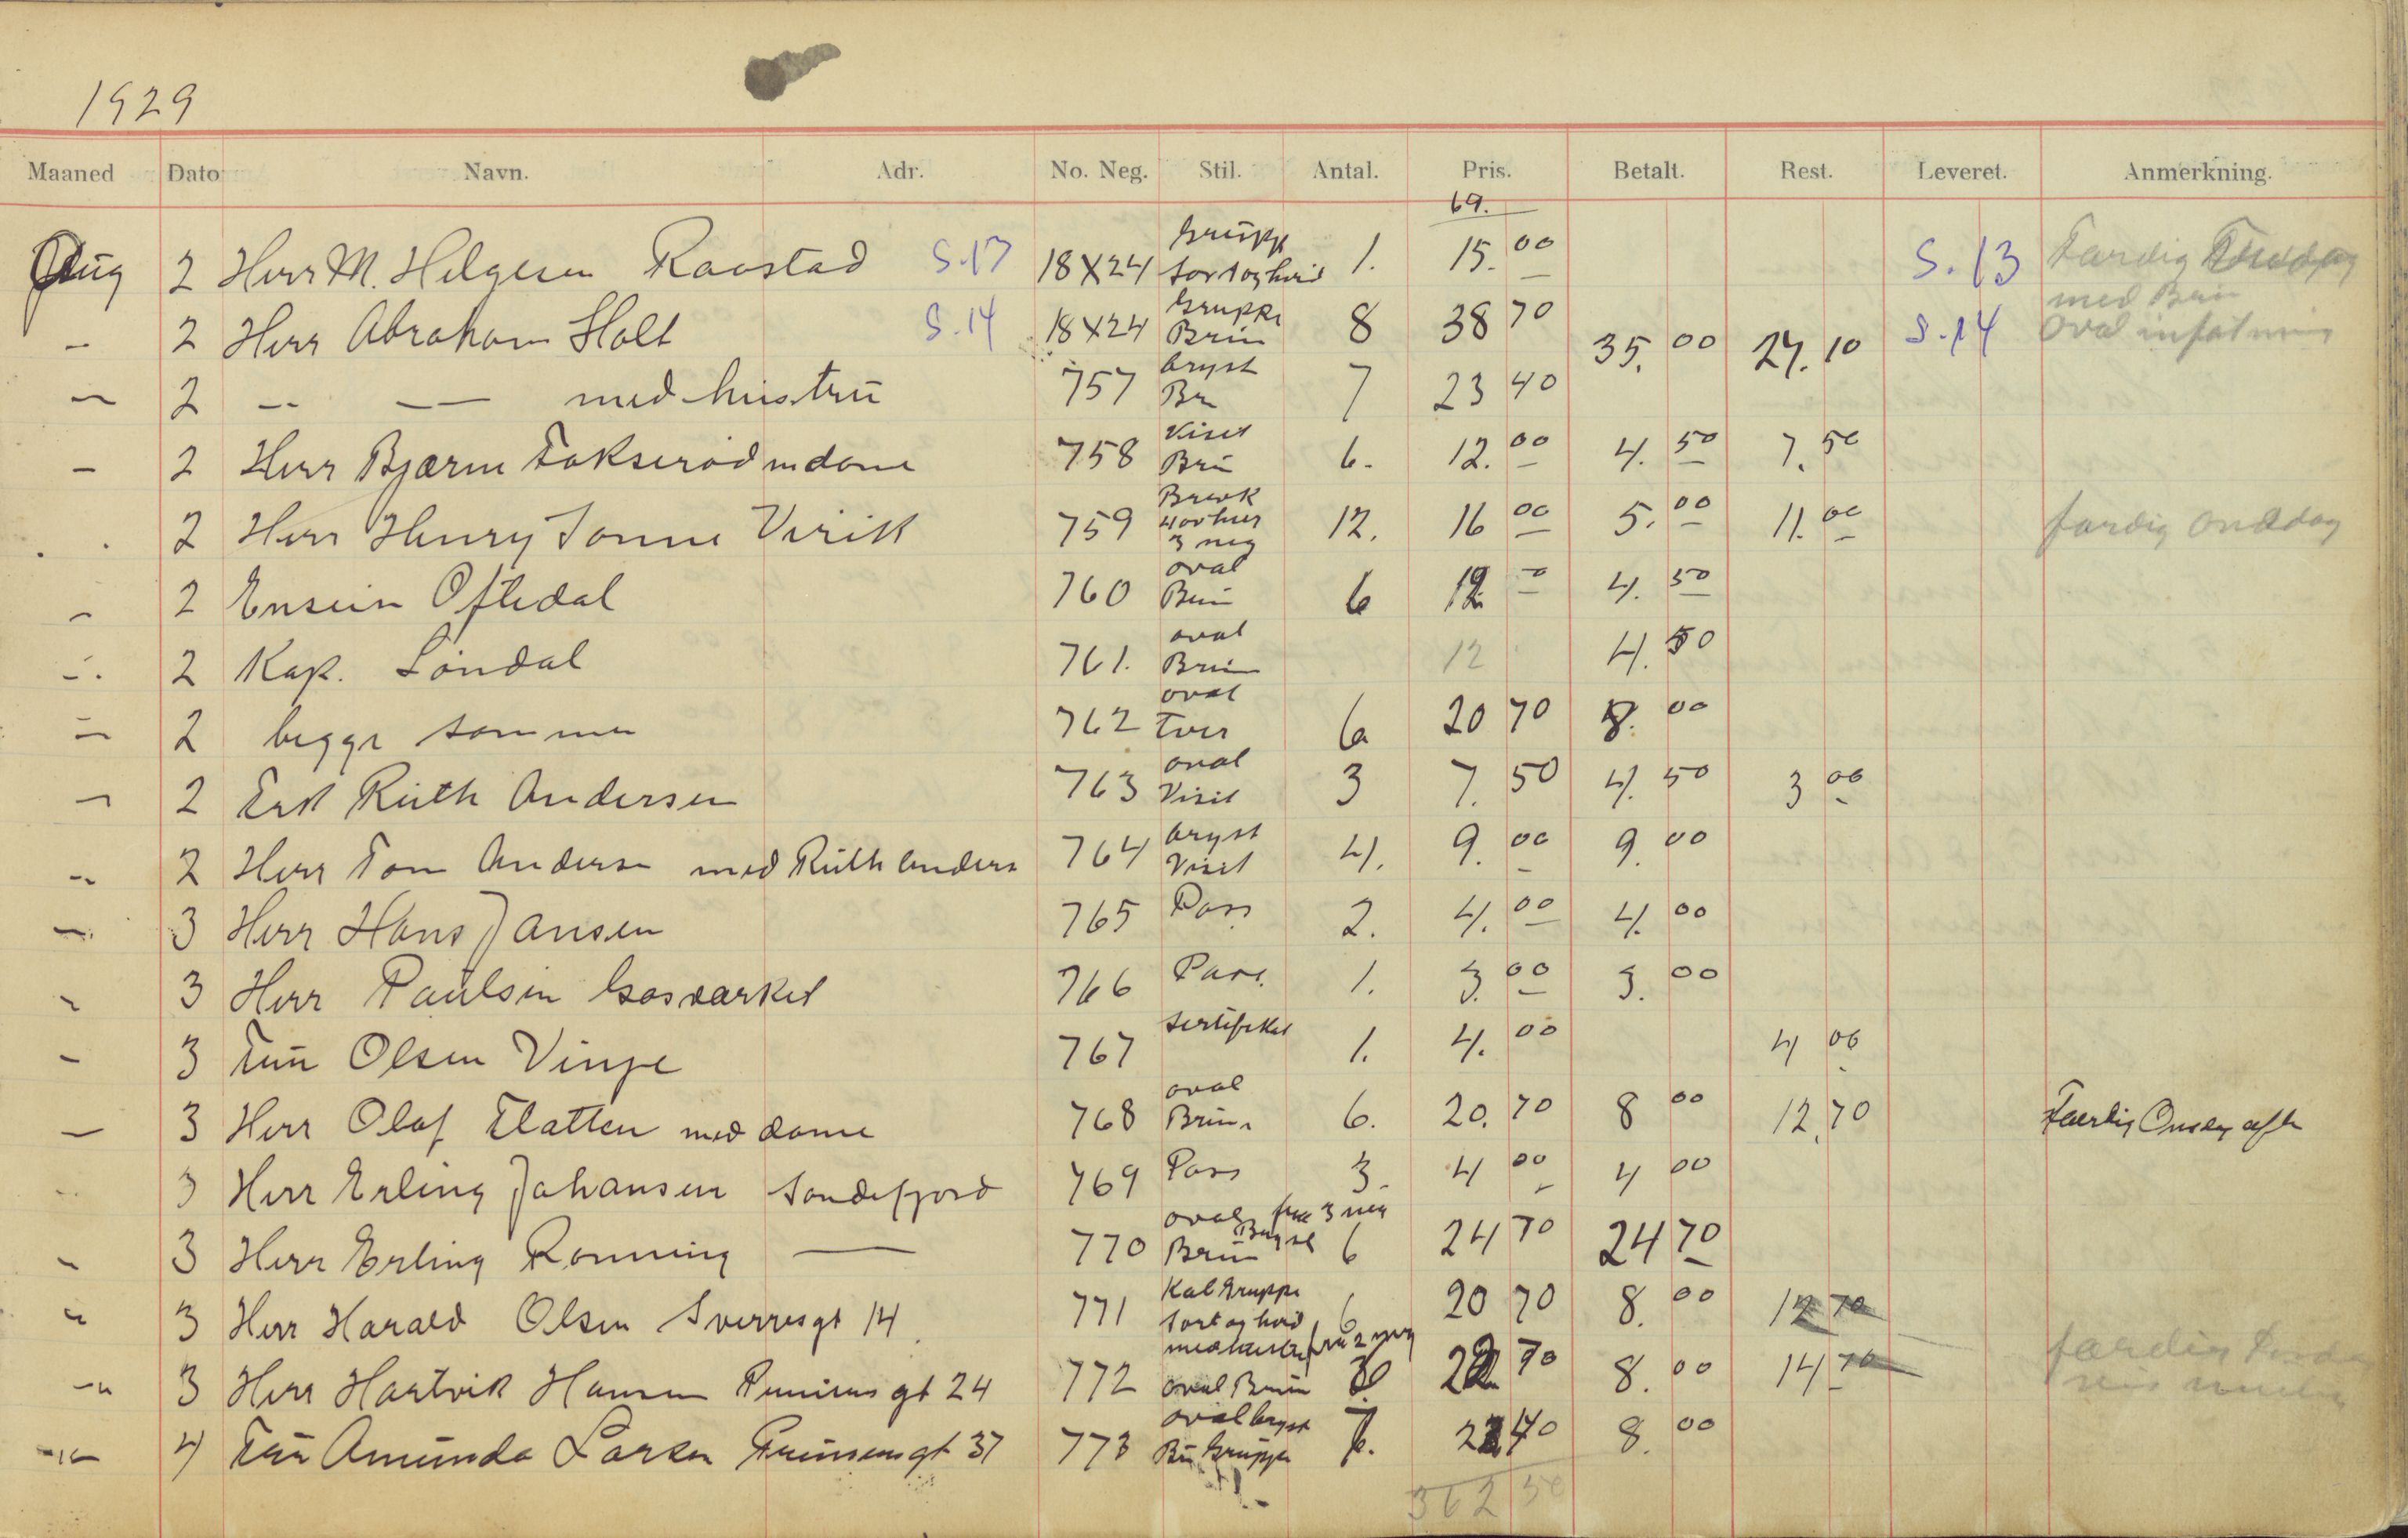 1929
Maaned Dato Navn. Adr. No. Neg. Stil. Antal. Pris. Betalt. Rest. Leveret. Anmerkning.
69.
Aug 2 Herr M. Helgesen Raastad S.13 18X24 Grupp sort og hvid 1. 15.00 S.13 Færdig
– 2 Herr Abraham Holt S.14 18X24 Gruppe Brun 8 38 70 35.00 27.10 S.14 med Brun oval infatning
– 2 – — med hustru 757 bryst Br 7 23 40
– 2 Herr Bjarne Fokserød m dame 758 Visit Brun 6. 12.00 4.50 7.50
2 Herr Henry Sonne Virik 759 3 neg 12. 16 00 5.00 11.00 færdig onsdag
– 2 Ensein Oftedal 760 oval Brun 6 12 – 4.50
– 2 Kap. Löndal 761. oval Brun 12 4.50
– 2 begge sammen 762 oval Tver 6 20 70 8.00
– 2 Frk Ruth Andersen 763 oval Visit 3 7.50 4.50 3 00
– 2 Herr Tom Anderse med Ruth Anders 764 bryst Visit 4. 9.00 9.00
– 3 Herr Hans Jansen 765 Pass 2. 4.00 4.00
– 3 Herr Paulsen Gasværket 766 Pass 1. 3.00 3.00
– 3 Fru Olsen Vinje 767 sertifikat 1. 4.00 4 00
– 3 Herr Olaf Flatten med dame 768 oval Brun 6. 20.70 8 00 12.70 Færdig Onsdag aften
3 Herr Erling Johansen Sandefjord 769 Pass 3. 4 00 4 00
– 3 Herr Erling Ronning — 770 oval fra 3 neg Brun Bryst 6 24 70 24 70
– 3 Herr Harald Olsen Sverresgt 14 771 Kab Gruppe sort og hvid 6 20 70 8.00 12 70
–"– 3 Herr Hartvik Hansen gt 24 772 fra 2 neg oval Brun 70 8.00 14 70 færdig
–"– 4 Fru Amunda Larsen gt 37 773 oval bryst Br Gruppe 7. 23 40 8.00
362 50